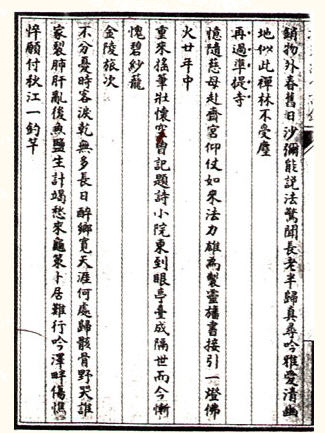 鎖物外春舊日沙彌能說法驚聞長老半歸真尋吟雅愛清幽
地似此禪林不受塵
再過準提寺
憶隨慈母赴齋宮仰仗如來法力雄為製靈旛書接引一燈佛
火廿年中
重來搖筆壯懷空曾記題詩小院東到眼亭臺成隔世而今慚
愧碧紗籠
金陵旅次
不分憂時客淚乾無多長日醉鄉寬天涯何處歸骸骨野哭誰
家裂肺肝亂後魚鹽生計竭愁來龜策卜居難行吟澤畔傷憔
悴願付秋江一釣竿